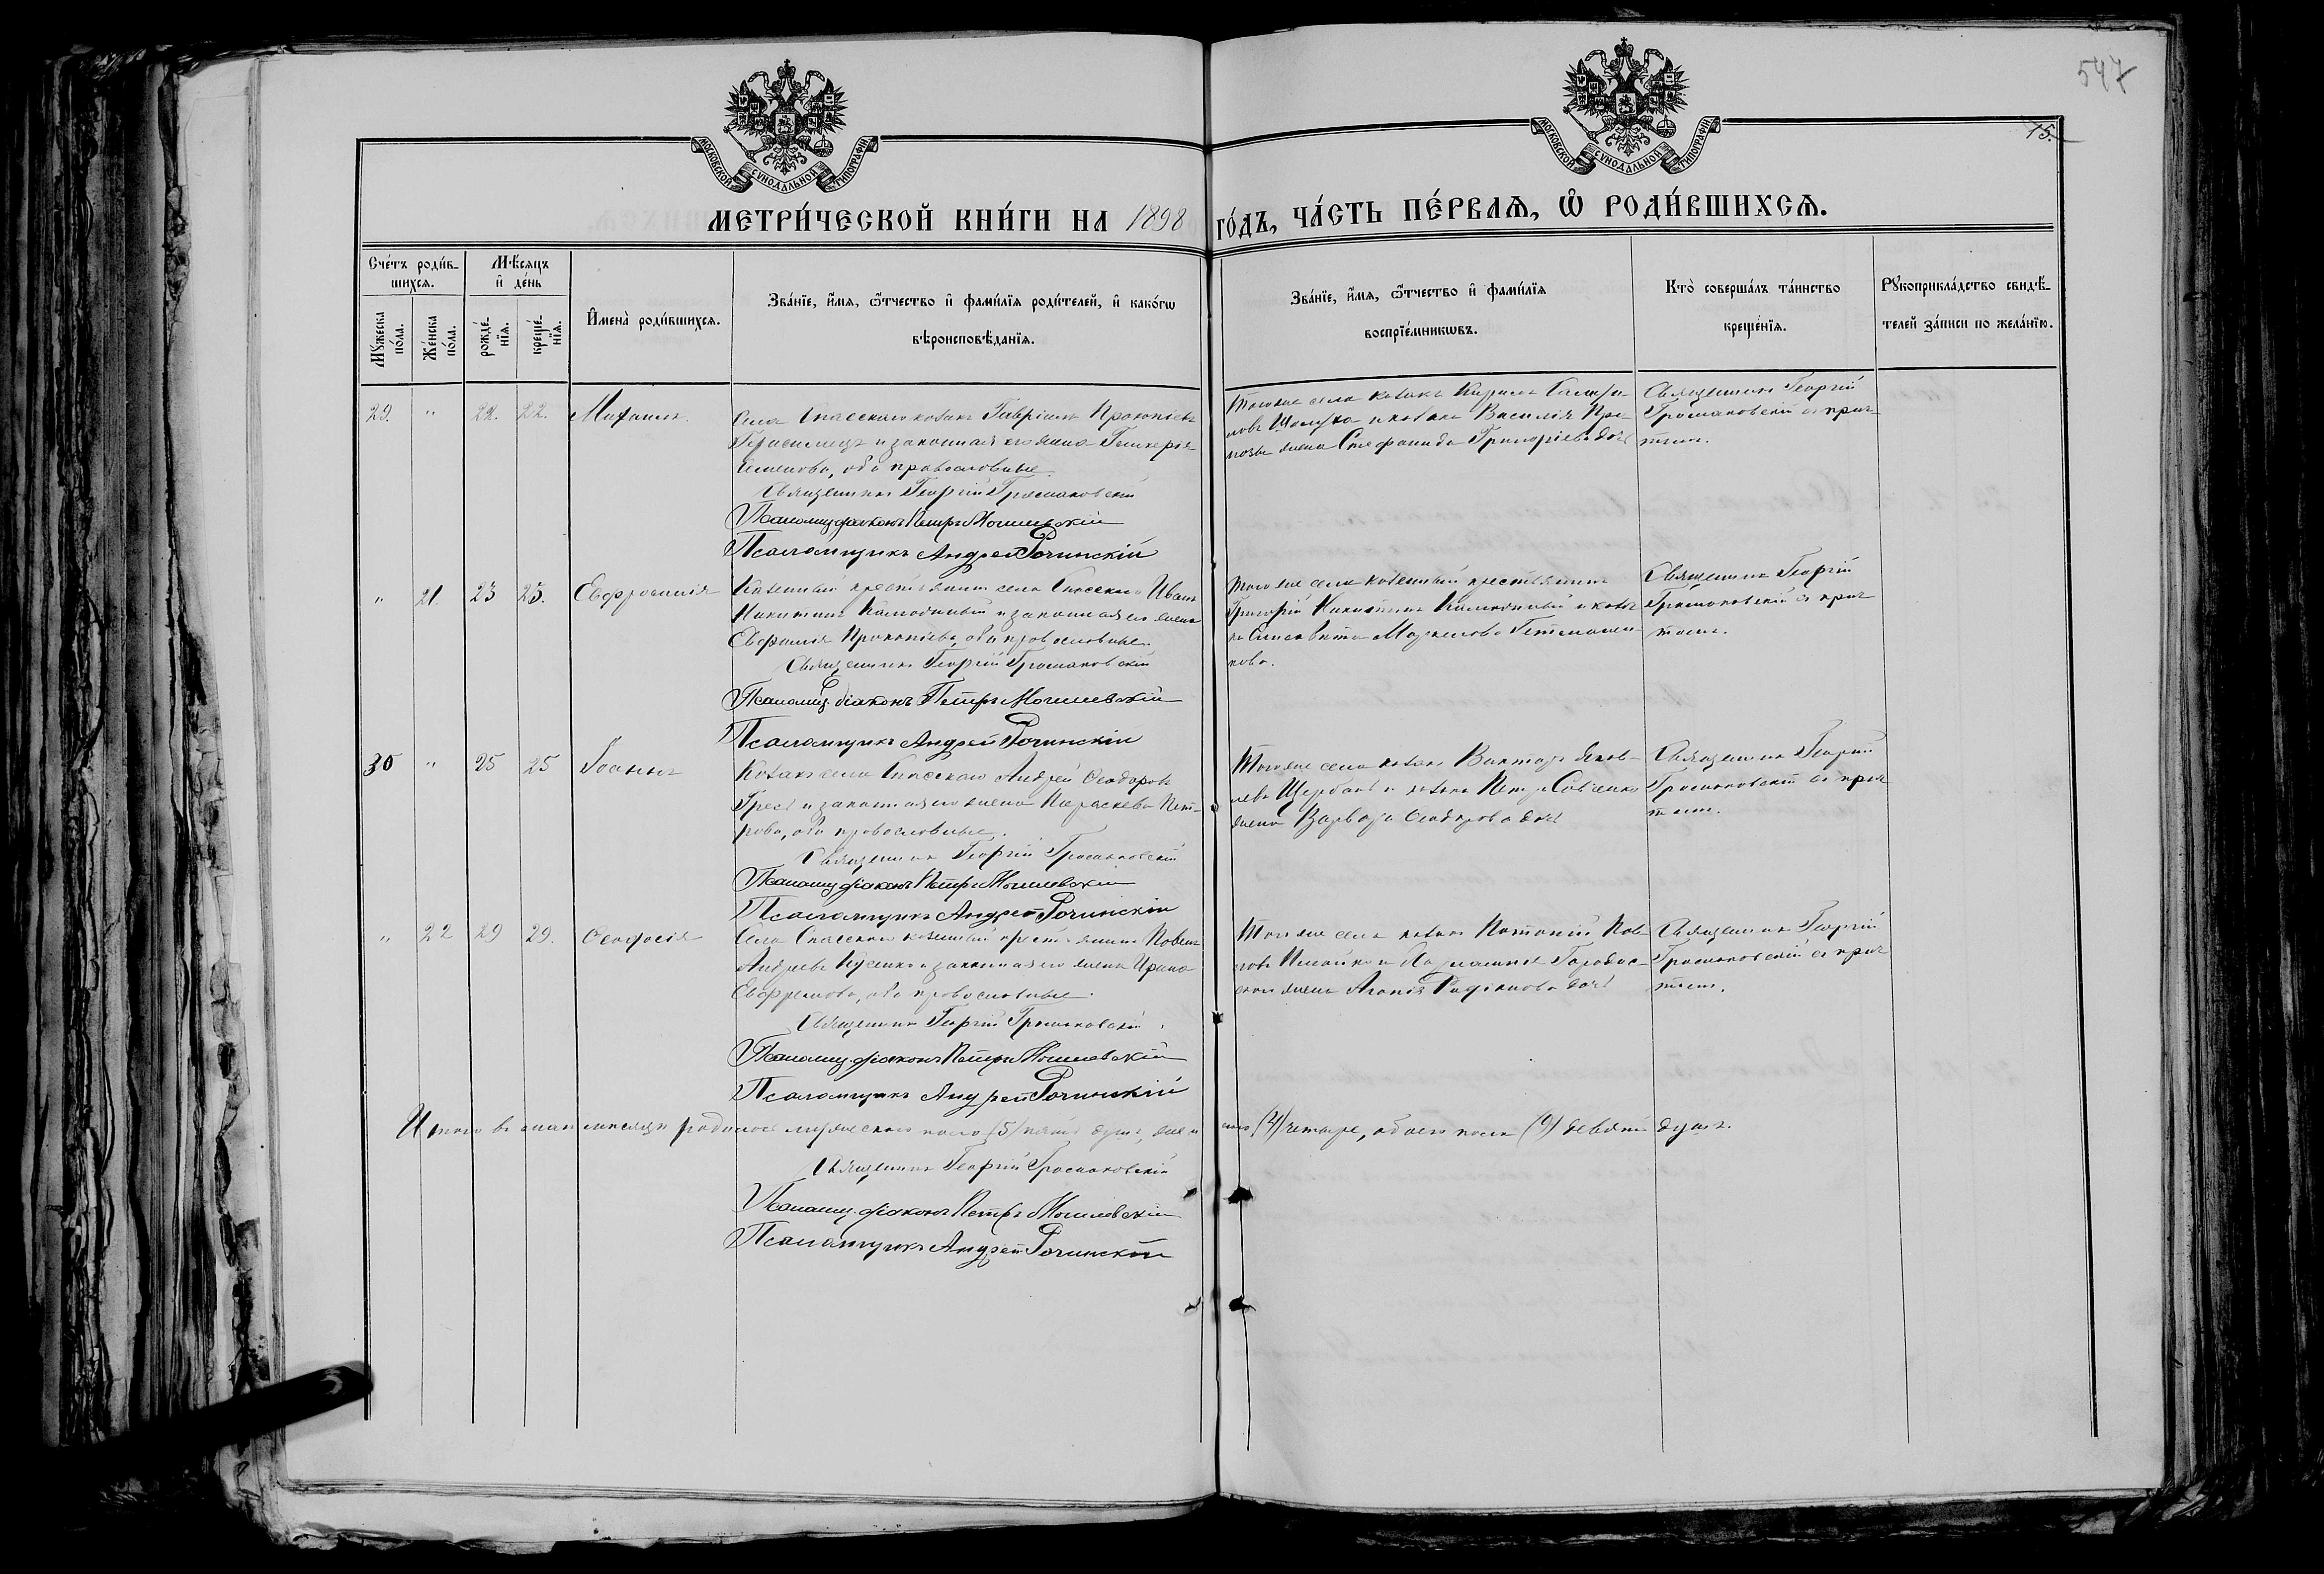 547
15.
МОСКОВСКОЙ СѴНОДАЛЬНОЙ ТИПОГРАФІИ
МОСКОВСКОЙ СѴНОДАЛЬНОЙ ТИПОГРАФІИ
МЕТРИ́ЧЕСКОЙ КНИ́ГИ НА 1898 ГО́ДЪ, ЧА́СТЬ ПЕ́РВАѦ, Ѽ РОДИ́ВШИХСѦ.
Сче́тъ роди́в-
шихсѧ.
Мꙋжеска по́ла.
Же́нска по́ла.
Мѣ́сяцъ
и҆ де́нь
рожде́-
нїѧ.
креще́-
нїѧ.
И҆мена̀ роди́вшихсѧ.
Зва́нїе, и҆́мѧ, ѻ҆́тчество и҆ фами́лїѧ роди́телей, и҆ како́гѡ
вѣроисповѣ́данїѧ.
Зва́нїе, и҆́мѧ, ѻ҆́тчество и҆ фами́лїѧ
воспрїе́мникѡвъ.
Кто̀ соверша́лъ та́инство
креще́нїѧ.
Рꙋкоприкла́дство свидѣ́-
телей за́писи по жела́нїю.
29. " 22. 22. Михаилъ.
Села Спасскаго козакъ Гавріилъ Прокопіевъ
и законная его жена Гликерія
Семенова, оба православные.
Священникъ Георгій Громаковскій
Псаломщ. діаконъ Петръ Могилевскій
Псаломщикъ Андрей Рочинскій
Того же села козакъ Кириллъ
и козака Василія
жена Стефанида Григоріева дочь
Священникъ Георгій
Громаковскій съ прич-
томъ.
" 21. 23 25. Евфросинія
Казенный крестьянинъ села Спасскаго Иванъ
Никитинъ и законная его жена
Евфимія Прокопіева, оба православные.
Священникъ Георгій Громаковскій
Псаломщ. діаконъ Петръ Могилевскій
Псаломщикъ Андрей Рочинскій
Того же села казенный крестьянинъ
Григорій Никитинъ и козач-
ка Елисавета Маркелова Гетманен-
кова.
Священникъ Георгій
Громаковскій съ прич-
томъ.
30 " 25 25 Іоаннъ
Козакъ села Спасскаго Андрей Ѳеодоровъ
и законная его жена Параскева Пет-
рова, оба православные.
Священникъ Георгій Громаковскій
Псаломщ. діаконъ Петръ Могилевскій
Псаломщикъ Андрей Рочинскій
Того же села козакъ Викторъ Яков-
левъ Щербакъ и козака Петра Савченко
жена Варвара Ѳеодорова дочь
Священникъ Георгій
Громаковскій съ прич-
томъ.
" 22 29 29. Ѳеодосія
Села Спасскаго казенный крестьянинъ Павелъ
Андреевъ и законная его жена Ирина
Евфремова, оба православные.
Священникъ Георгій Громаковскій
Псаломщ. діаконъ Петръ Могилевскій
Псаломщикъ Андрей Рочинскій
Того же села козакъ
и
жена Агапія дочь
Священникъ Георгій
Громаковскій съ прич-
томъ.
Итого въ маѣ мѣсяцѣ родилось мужескаго пола (5) пять душъ, жен скаго (4) четыре, обоего пола (9) девять душъ.
Священникъ Георгій Громаковскій
Псаломщ. діаконъ Петръ Могилевскій
Псаломщикъ Андрей Рочинскій